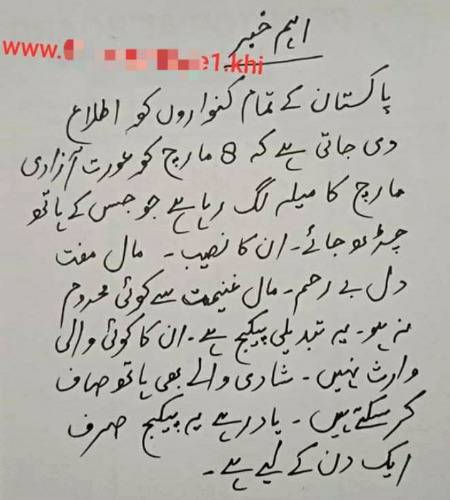 اہم خبر
www.
e1.khi
پاکستان کے تمام کنواروں کو اطلاع
دی جاتی ہے کہ 8 مارچ کو عورت آزادی
مارچ کا میلہ لگ رہا ہے جو جس کے ہاتھ
چڑھ جائے۔ ان کا نصیب۔ مال مفت
دل بے رحم۔ مال غنیمت سے کوئی محروم
نہ ہو۔ یہ تبدیلی پیکج ہے۔ ان کا کوئی والی
وارث نہیں۔ شادی والے بھی ہاتھ صاف
کر سکتے ہیں۔ یاد رہے یہ پیکج صرف
ایک دن کے لیے ہے۔